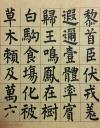 黎首臣伏戎羌
遐邇壹體率賓
歸王鳴鳳在樹
白駒食場化被
草木賴及萬方